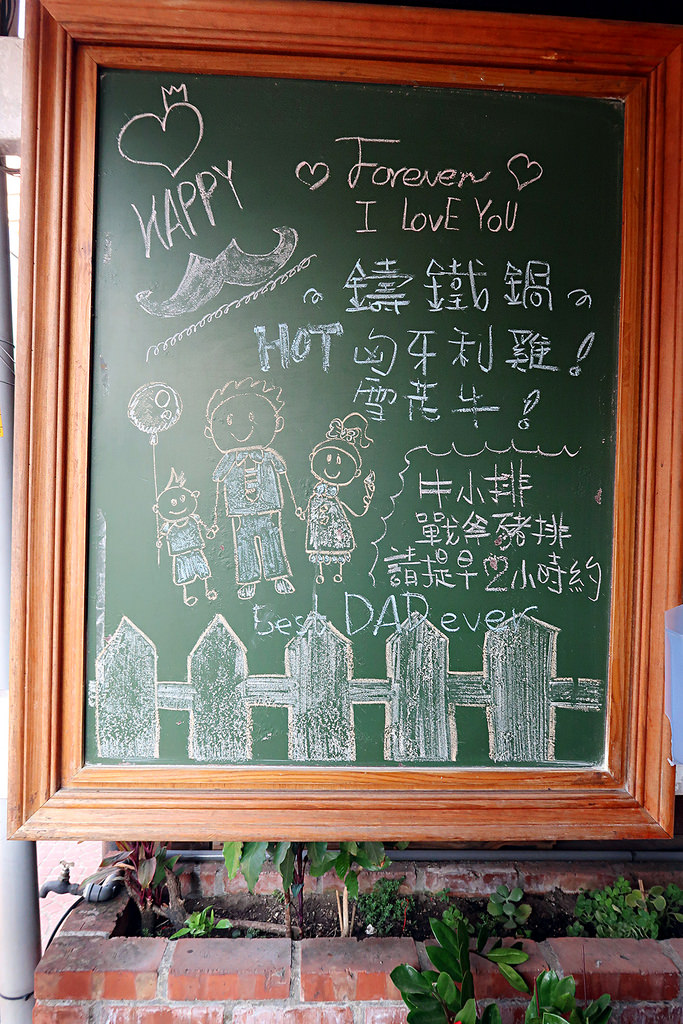 HAPPY
Forever
I LOVE YOU
鑄鐵鍋
HOT 匈牙利雞!
雪花牛!
牛小排
戰斧豬排
請提早2小時約
Best DAD ever